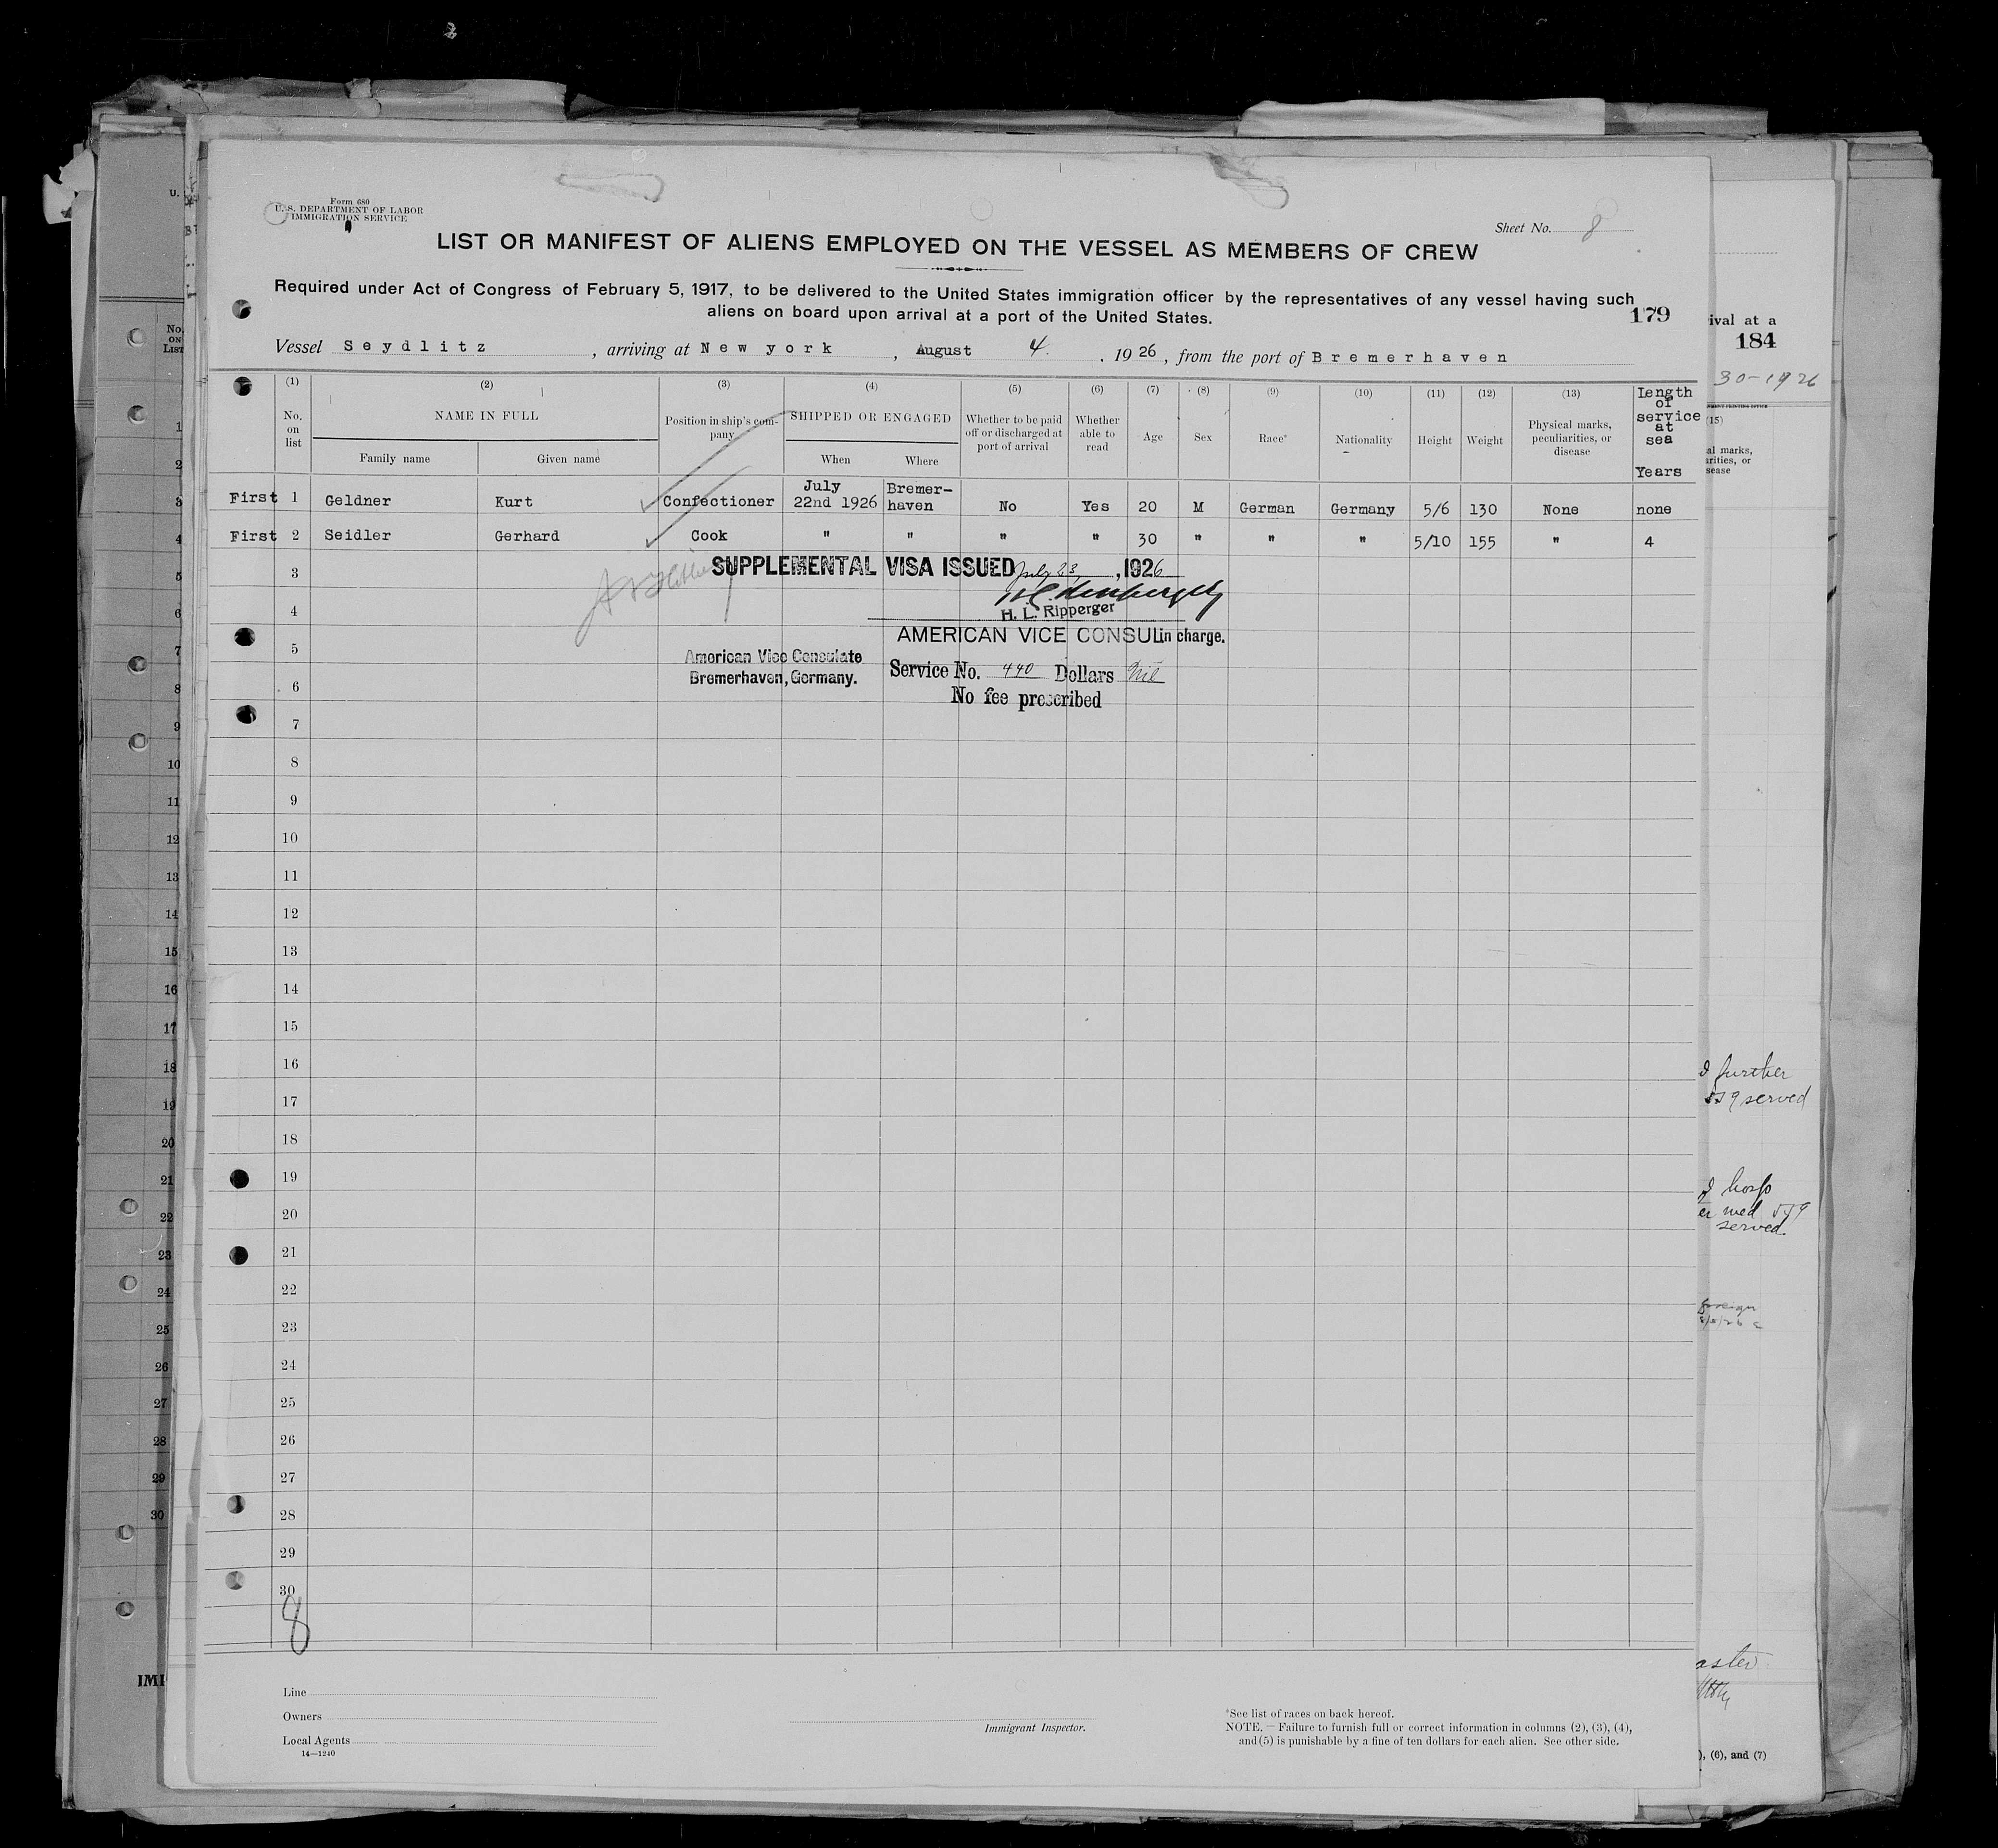 Form 680
U. S. DEPARTMENT OF LABOR
IMMIGRATION SERVICE
Sheet No. 8
LIST OR MANIFEST OF ALIENS EMPLOYED ON THE VESSEL AS MEMBERS OF CREW
Required under Act of Congress of February 5, 1917, to be delivered to the United States immigration officer by the representatives of any vessel having such
aliens on board upon arrival at a port of the United States.
179
Vessel Seydlitz, arriving at New york, August 4., 1926, from the port of Bremerhaven
(1) (2) (3) (4) (5) (6) (7) (8) (9) (10) (11) (12) (13)
No. on list
NAME IN FULL
Family name Given name
Position in ship's company
SHIPPED OR ENGAGED
When Where
Whether to be paid off or discharged at port of arrival
Whether able to read
Age
Sex
Race*
Nationality
Height
Weight
Physical marks, peculiarities, or disease
Length of service at sea
Years
First 1 Geldner Kurt Confectioner July 22nd 1926 Bremer-haven No Yes 20 M German Germany 5/6 130 None none
First 2 Seidler Gerhard Cook " " " " 30 " " " 5/10 155 " 4
SUPPLEMENTAL VISA ISSUED July 23, 1926
3
4
H. L. Ripperger
AMERICAN VICE CONSUL in charge.
5
American Vice Consulate
Bremerhaven, Germany.
Service No. 440 Dollars Nil
6
No fee prescribed
7
8
9
10
11
12
13
14
15
16
17
18
19
20
21
22
23
24
25
26
27
28
29
30
8
Line
Owners
Local Agents
14—1240
Immigrant Inspector.
*See list of races on back hereof.
NOTE. — Failure to furnish full or correct information in columns (2), (3), (4),
and (5) is punishable by a fine of ten dollars for each alien. See other side.
U.
No. ON LIST
1
2
3
4
5
6
7
8
9
10
11
12
13
14
15
16
17
18
19
20
21
22
23
24
25
26
27
28
29
30
IMI
ival at a
184
30-1926
(15)
al marks,
arities, or
sease
further
served
hosp
er med
served
foreign
aster
), (6), and (7)